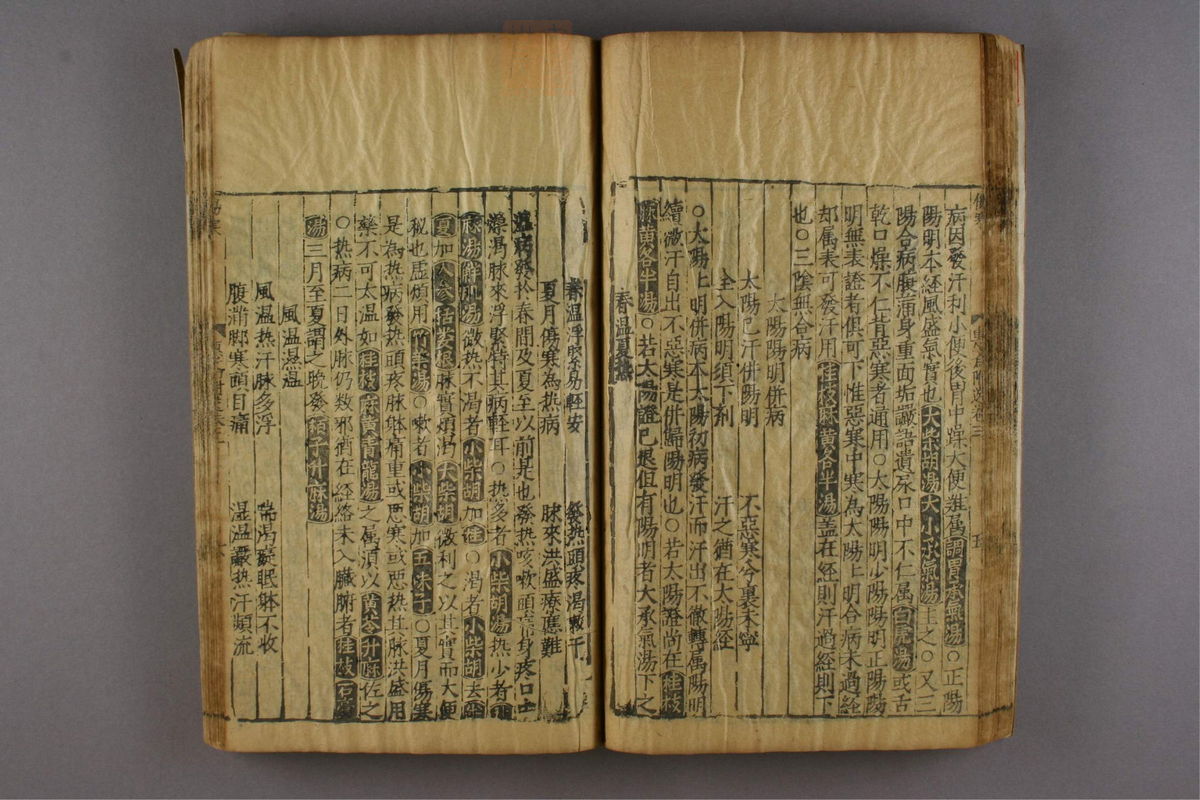 病因發汗利小便後胃中躁大便難属調胃承氣湯○正陽
陽明本經風盛氣實也大柴胡湯大小承氣湯主之○又三
陽合病腹滿身重面垢譫語遺尿口中不仁属白虎湯或舌
乾口燥不仁背惡寒者通用○太陽陽明少陽陽明正陽陽
明無表證者俱可下惟惡寒中寒為太陽上明合病未過經
却属表可發汗用桂枝麻黄各半湯盖在經則汗過經則下
也○三陰無合病
太陽陽明併病
太陽已汗併陽明 不惡寒兮裏未寧
全入陽明須下剤 汗之猶在太陽經
○太陽上明併病本太陽初病發汗而汗出不徹轉属陽明
續微汗自出不惡寒是併歸陽明也○若太陽證尚在桂枝
麻黄各半湯○若太陽證已退但有陽明者大承氣湯下之
春温夏熱
春温浮緊易輕安 發熱頭疼渴
夏月傷寒為热病 脉來洪盛療應難
温病發於春間及夏至以前是也發热咳嗽頭疼身疼口
燥渴脉來浮緊特其病軽耳○热多者小柴胡湯热少者
湯解肌湯微热不渴者小柴胡加桂○渴者小柴胡去
夏加人参栝蔞根脉實煩渴大柴胡微利之以其實而大便
秘也虚煩用竹葉湯○嗽者小柴胡加五味子○夏月傷寒
是為热病發热頭疼脉躰痛重或悪寒或悪热其脉洪盛用
藥不可太温如桂枝麻黄青龍湯之属須以黄芩升麻佐之
○热病二日外脉仍数邪猶在經絡未入臓腑者桂枝石膏
湯三月至夏謂之晩發梔子升麻湯
風温濕温
風温热汗脉多浮 喘渴 眠躰不收
腹滿脚寒頭目痛 湿温 热汗頻流